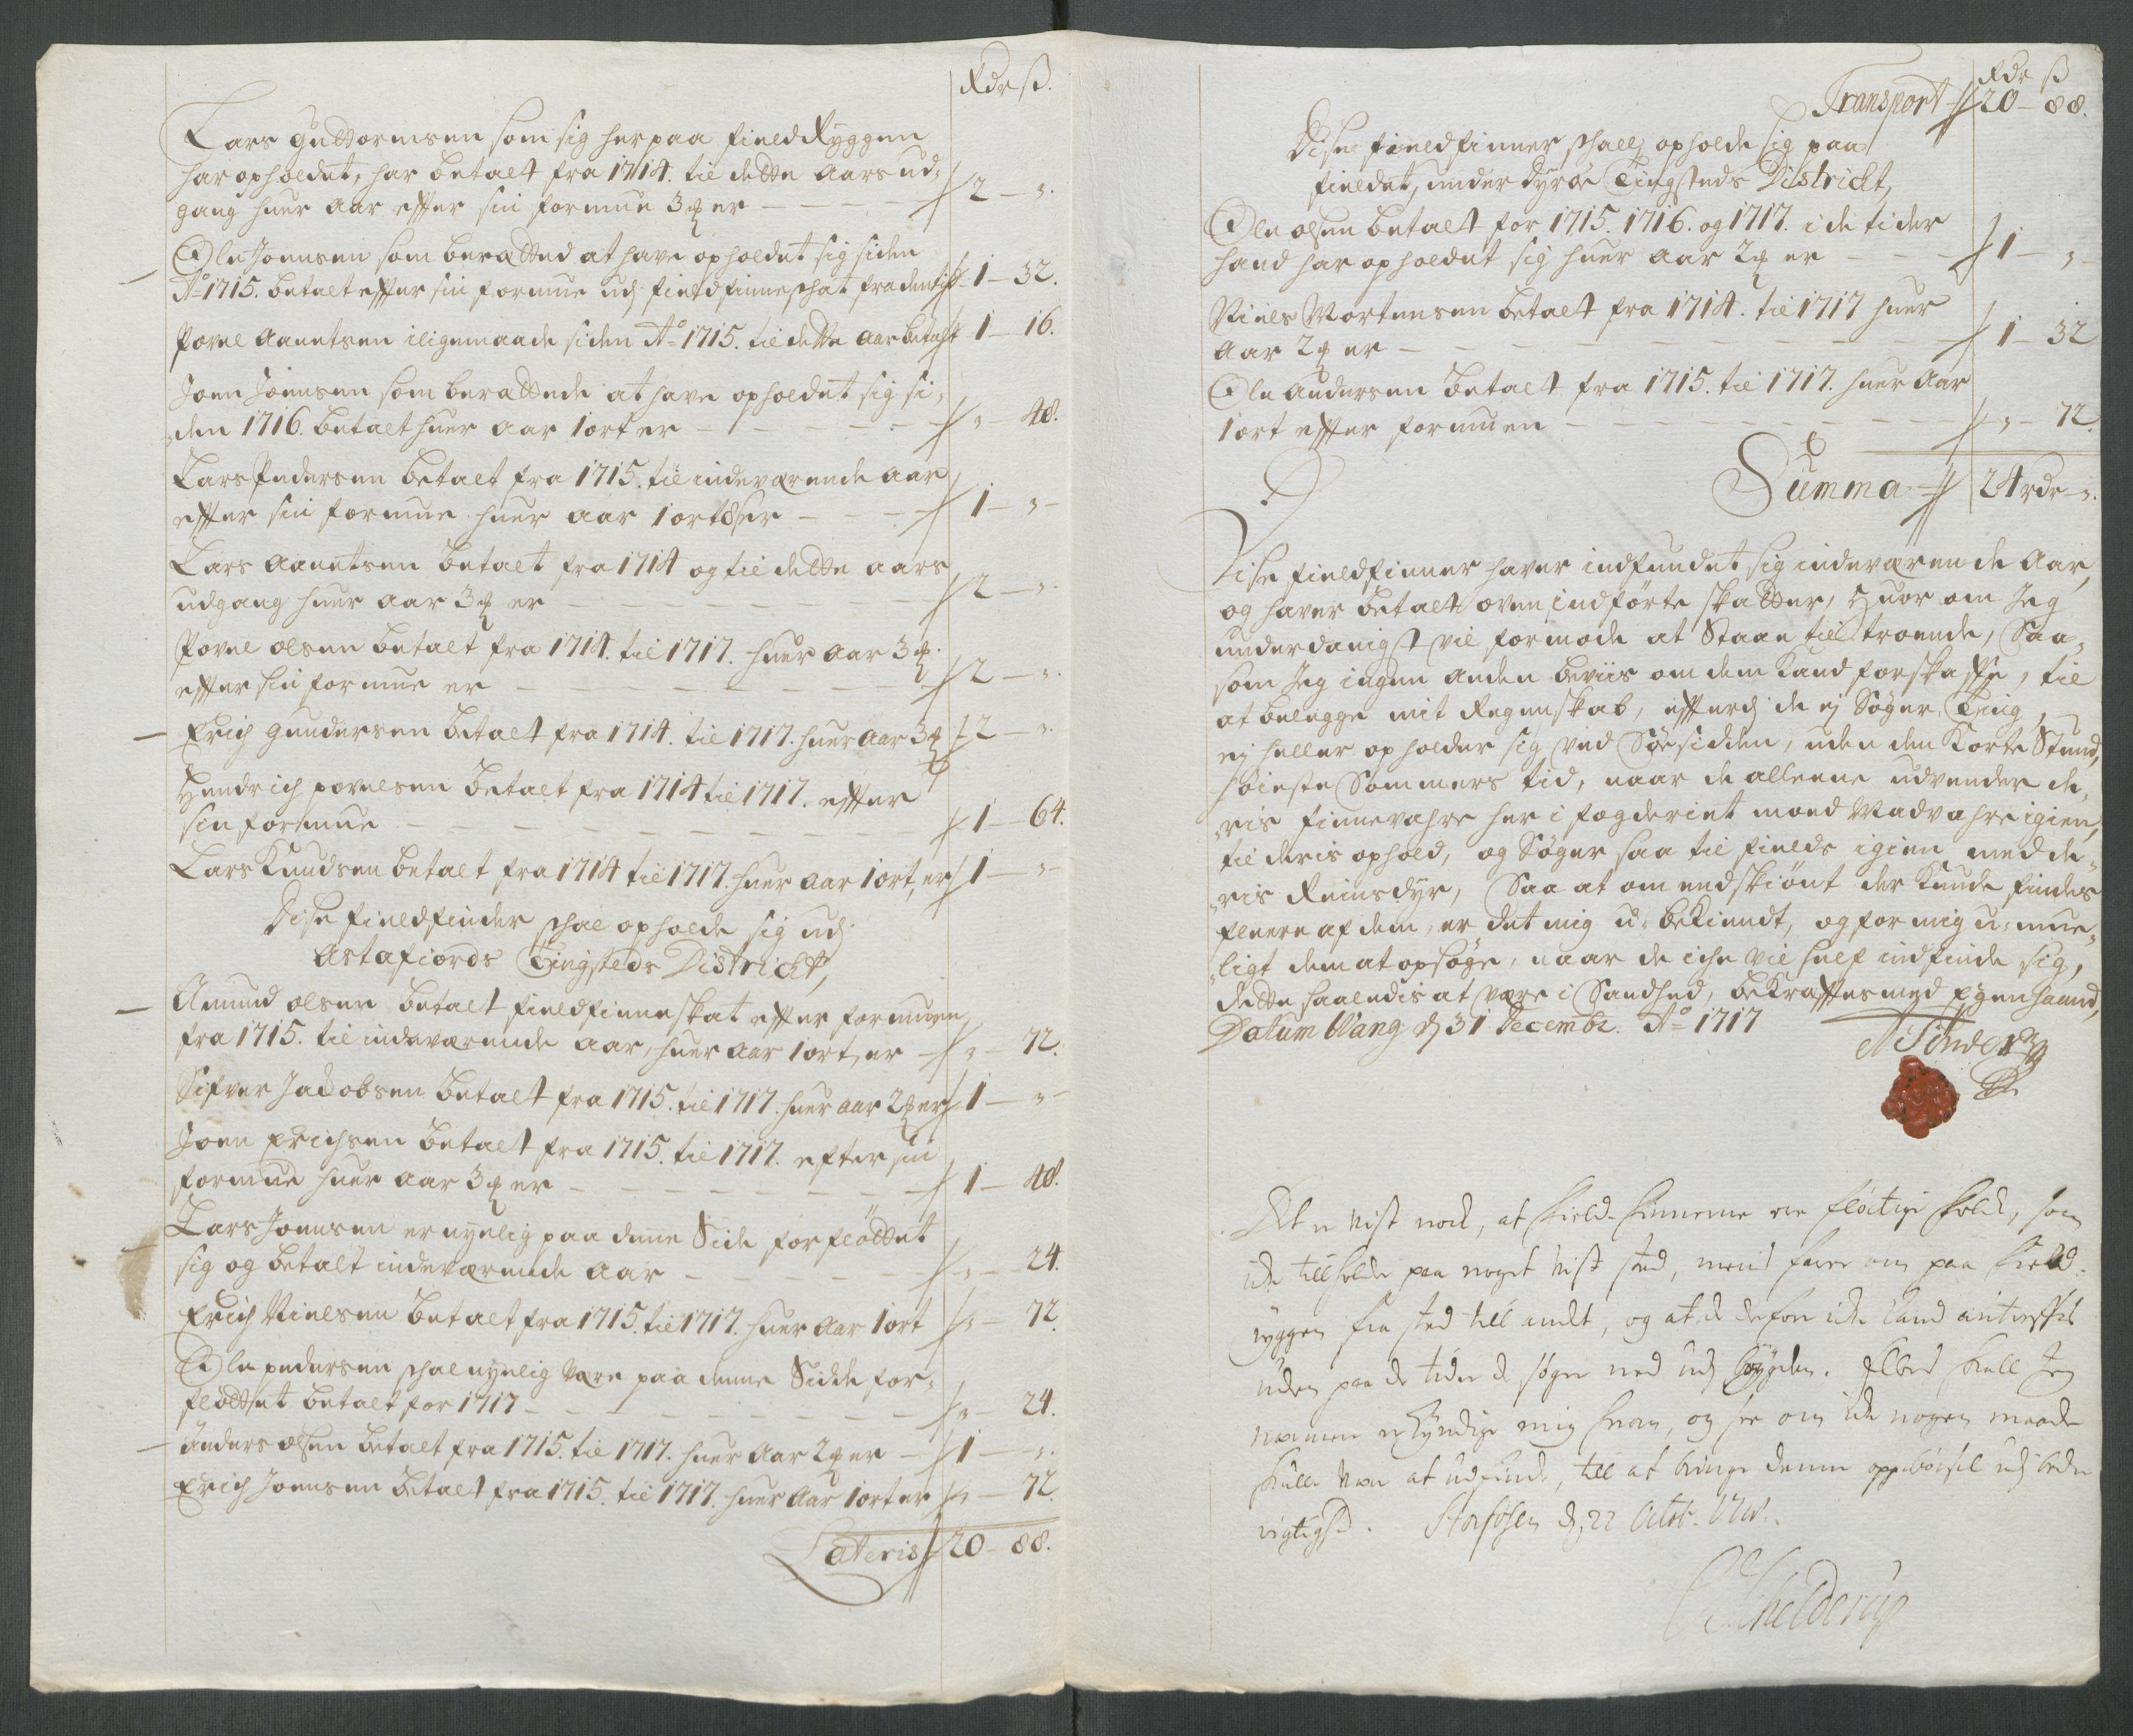 Rdr ß.
Lars Guttormsen som sig her paa field Ryggen
har opholdet, har betalt fra 1714. til dette Aars ud-
gang huer Aar effter sin formue 3 # er — 2 — „.
Ole Joensen som beretted at have opholdet sig siden
Ao 1715. betalt effter sin formue udj fieldfinneschat fra den tid 1 — 32.
Povel Aauntsen iligemaade siden Ao 1715. til dette Aar betalt 1 — 16.
Joen Joensen som berettede at have opholdet sig si-
den 1716. betalt huer Aar 1 ort er — „ — 48.
Lars Pedersen betalt fra 1715. til indeværende Aar
effter sin formue huer Aar 1 ort 8 ß er — 1 — „ —
Lars Aauntsen betalt fra 1714 og til dette Aars
udgang huer Aar 3 # er — 2 — „.
Povel Olsen betalt fra 1714. til 1717. huer Aar 3 #.
effter sin formue er — 2 — „.
Erich Gundersen betalt fra 1714. til 1717. huer Aar 3 # 2 — „.
Hendrich Povelsen betalt fra 1714 til 1717. effter
sin formue — 1 — 64.
Lars Knudsen betalt fra 1714 til 1717. huer Aar 1 ort, er 1 — „ —
Dise fieldfinder schal opholde sig udj
Astafiords Tingsteds District,
Amund Olsen betalt fieldfinneskat effter formuen
fra 1715. til indeværende Aar, huer Aar 1 ort, er — „ — 72.
Sifver Jacobsen betalt fra 1715. til 1717. huer Aar 2 # er 1 — „ —
Joen Erichsen betalt fra 1715. til 1717. efter sin
formue huer Aar 3 # er — 1 — 48.
Lars Joensen er nyelig paa denne Side forflöttet
sig og betalt indeværende Aar — „ — 24.
Erich Nielsen betalt fra 1715. til 1717. huer Aar 1 ort „ — 72.
Ole Pedersen schal nyelig være paa denne Sidde for-
flöttet betalt for 1717 — „ — 24.
Anders Olsen betalt fra 1715. til 1717. huer Aar 2 # er — 1 — „.
Erich Joensen betalt fra 1715. til 1717. huer Aar 1 ort er „ — 72.
Lateris 20 — 88.
Rdr ß
Transport 20 — 88.
Dise fieldfinner schall opholde sig paa
fieldet, under Dyrøe Tingsteds District,
Ole Olsen betalt for 1715. 1716. og 1717. i de tider
hand har opholdet sig huer Aar 2 # er — 1 — „ —
Niels Mortensen betalt fra 1714. til 1717 huer
Aar 2 # er — 1 — 32
Ole Andersen betalt fra 1715. til 1717. huer Aar
1 ort effter formuen — „ — 72.
Summa 24 rdr — „.
Dise fieldfinner haver indfundet sig indeværende Aar,
og haver betalt oven indförte skatter, Huor om Jeg
underdanigst vil formode at Staae til troende, Saa-
som Jeg ingen anden beviis om dem kand forskaffe, til
at belegge mit Regenskab, efftersom de ej Søger Ting,
ej heller opholder sig ved Søesidden, uden den korte Stund,
høieste Sommers tid, naar de alleene udvender de-
ris finnevahre her i fogderiet moed Madvahre igien,
til deris ophold, og Søger saa til fields igien med de-
ris Reinsdyr, Saa at om endskiönt der kunde findes
fleere af dem, er det mig u-bekiendt, og for mig u-mue-
ligt dem at opsøge, naar de iche vil self indfinde sig,
dette saaledis at være i Sandhed, bekrafftes med Egen haand,
Datum Wang d 31 Decembr. Ao 1717
Det er vist nock, at field-finnerne ere flöctige folck, som
icke tilholder paa noget vist sted, mend farer om paa field-
ryggen fra sted till andet, og at de derfore icke kand antreffes
uden paa de tider de søger ned udj bøygden. Ellers skall Jeg
nermere erkyndige mig herom, og see om icke nogen maade
skulle være at udfinde, till at bringe denne oppebørsel udj bedre
rigtighed. Storfosen d: 22 Octobr. 1718.
Schelderup